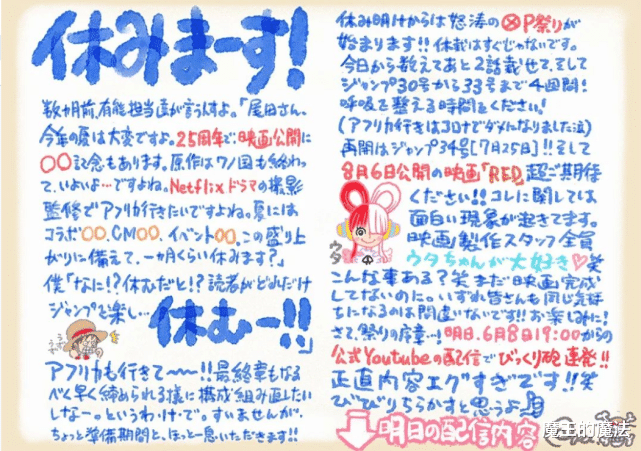 休みまーす!
数ヶ月前、有能担当達が言うんすよ。「尾田さん、
今年の夏は大変ですよ。25周年で、映画公開に
〇〇記念もあります。原作はワノ国も終わっ
て、いよいよ…ですよね。Netflixドラマの撮影
監修でアフリカ行きたいですよね。夏には
コラボ〇〇、CM〇〇、イベント〇〇、この盛り上
がりに備えて、一ヶ月くらい休みます?」
僕「なに!?休むだと!?読者がどれだけ
ジャンプを楽し…
休むーー!!」
アフリカも行きて〜〜!!最終章もなる
べく早く締められる様に構成組み直したい
しなー。というわけで。すいませんが、
ちょっと準備期間と、ほっと一息いただきます!!
休み明けからは怒涛のOP祭りが
始まります!!休載はすぐじゃないです。
今日から数えてあと2話載せて、そして
ジャンプ30号から33号まで4週間!
呼吸を整える時間をください!
(アフリカ行きはコロナでダメになりました泣)
再開はジャンプ34号[7月25日]!!そして
8月6日公開の映画「RED」超ご期待
ください!!コレに関しては
面白い現象が起きてます。
映画製作スタッフ全員
ウタちゃんが大好き♡笑
ウタ
こんな事ある?笑 まだ映画完成
してないのに。いずれ皆さんも同じ気持
ちになるのは間違いないです!!お楽しみに!
さて、祭りの序章…!明日、6月8日19:00からの
公式Youtubeの配信でびっくり砲連発!!
正直内容エグすぎです!!笑
びびりちらかすと思うよ
明日の配信内容
魔王的魔法